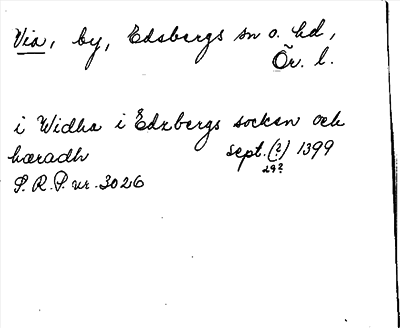 Via, by, Edsbergs sn o. hd,
Ör. l.
i Widha i Edzbergs socken och
hæradh sept. (?) 1399
29?
S. R. P. nr. 3026